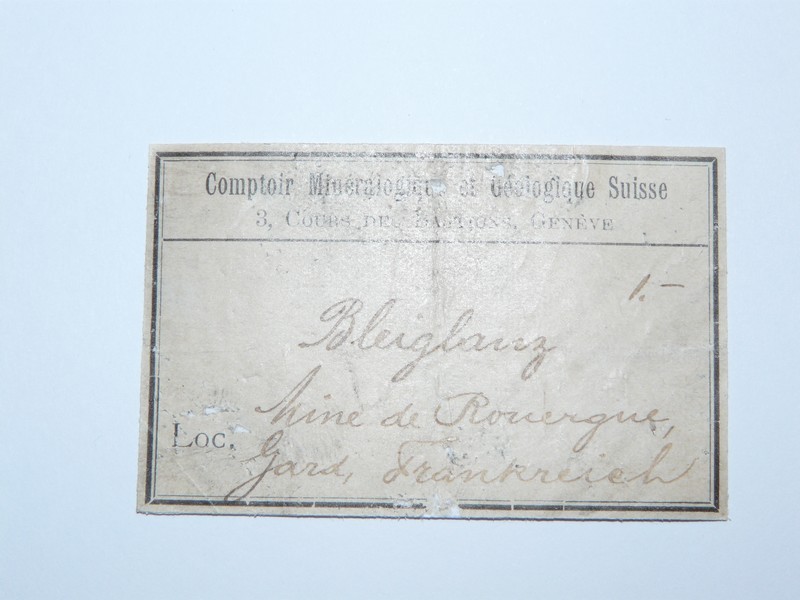 Comptoir Minéralogique et Géologique Suisse
3, COURS DES BASTIONS, GENÈVE
1.—
Bleiglanz
Mine de Rouergue,
Loc. Gard, Frankreich